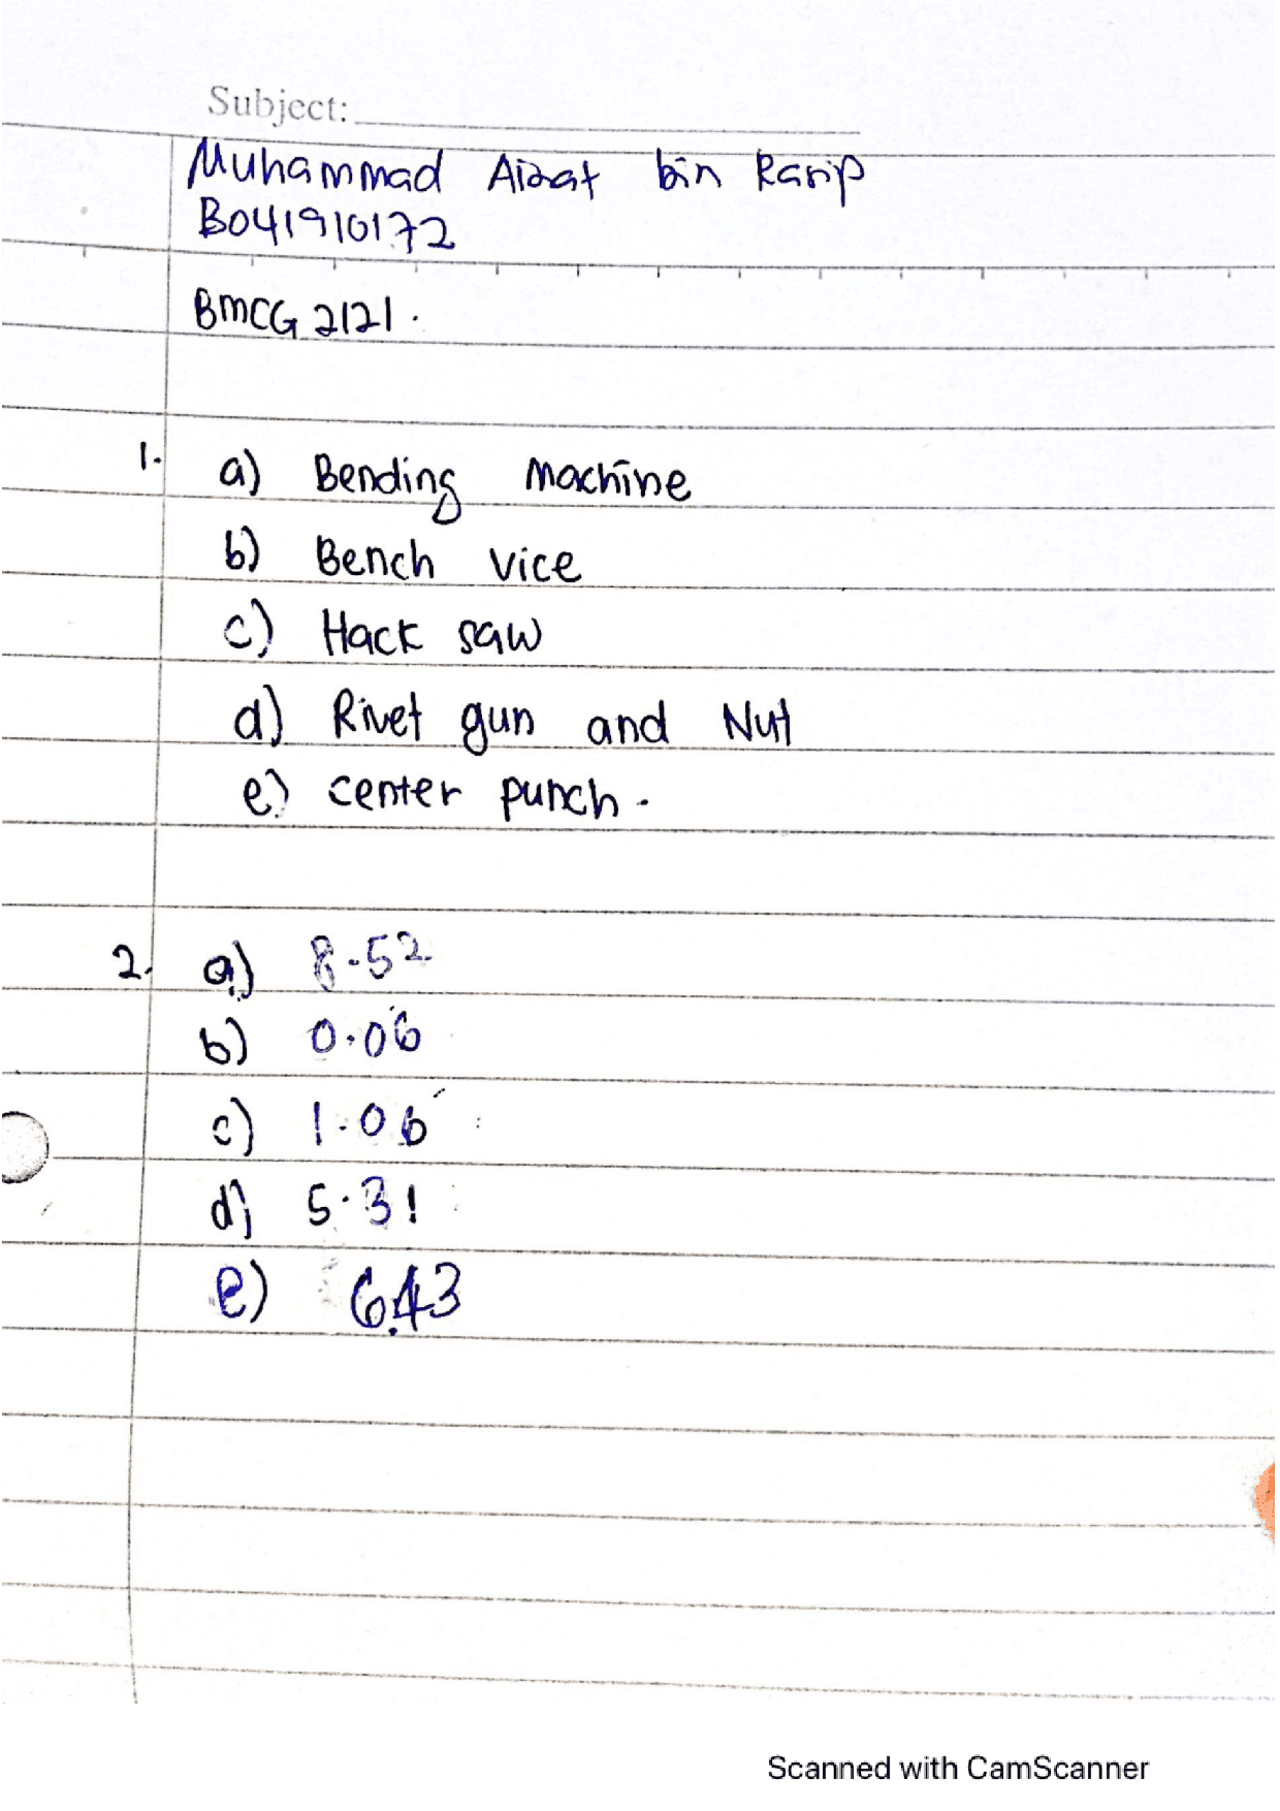 Subject:
Muhammad Aizat bin Rasip
B041910172
BMCG 2121.
1. a) Bending Machine
b) Bench vice
c) Hack saw
d) Rivet gun and Nut
e) center punch.
2. a) 8.52
b) 0.06
c) 1.06
d) 5.31
e) 6.43
Scanned with CamScanner